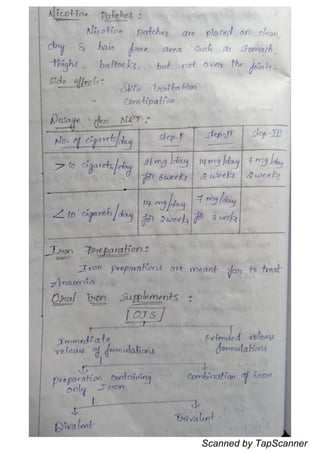 Nicottine Patches :
Nicottine patches are placed on clean,
dry & hair free area such as stomach,
thighs, buttocks, but not over the joints.
Side effects :
Skin Irritation
- Constipation
Dosage for NRT :
No. of cigarets/day step-I step-II step-III
> 10 cigarets/day 21 mg/day for 6 weeks 14 mg/day 2 weeks 7 mg/day 2 weeks
< 10 cigarets/day 14 mg/day for 2 weeks 7 mg/day for 2 weeks
Iron Preparation :
Iron preparations are meant for to treat
Anaemia
Oral iron Supplements :
[OIS]
Immediate release of formulations
Extended release formulations
preparation containing only Iron
Combination of iron
Divalent
Trivalent
Scanned by TapScanner